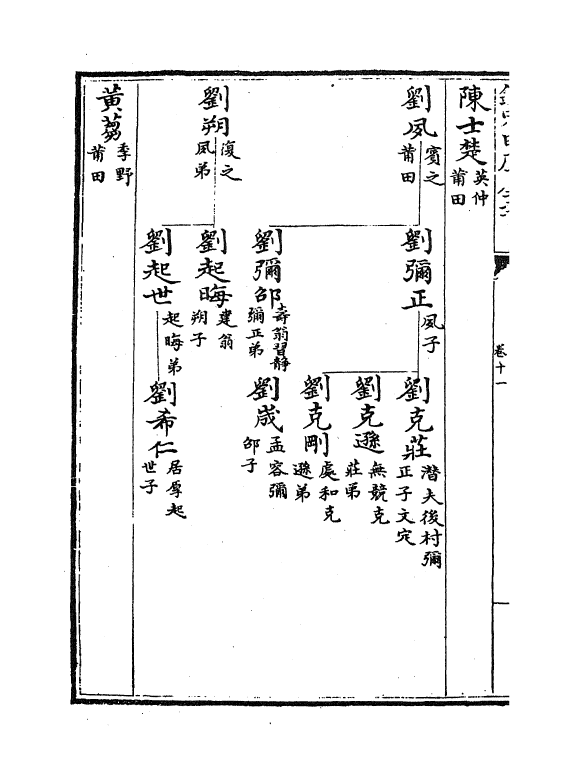 卷十一
陳士楚
英仲
莆田
劉夙
賓之
莆田
劉彌正
夙子
劉克莊
潛夫後村彌
正子文定
劉克遜
無競克
莊弟
劉克剛
處和克
遜弟
劉彌邵
壽翁習靜
彌正弟
劉
孟容彌
邵子
劉朔
復之
夙弟
劉起晦
建翁
朔子
劉起世
起晦弟
劉希仁
居厚起
世子
黃芻
季野
莆田